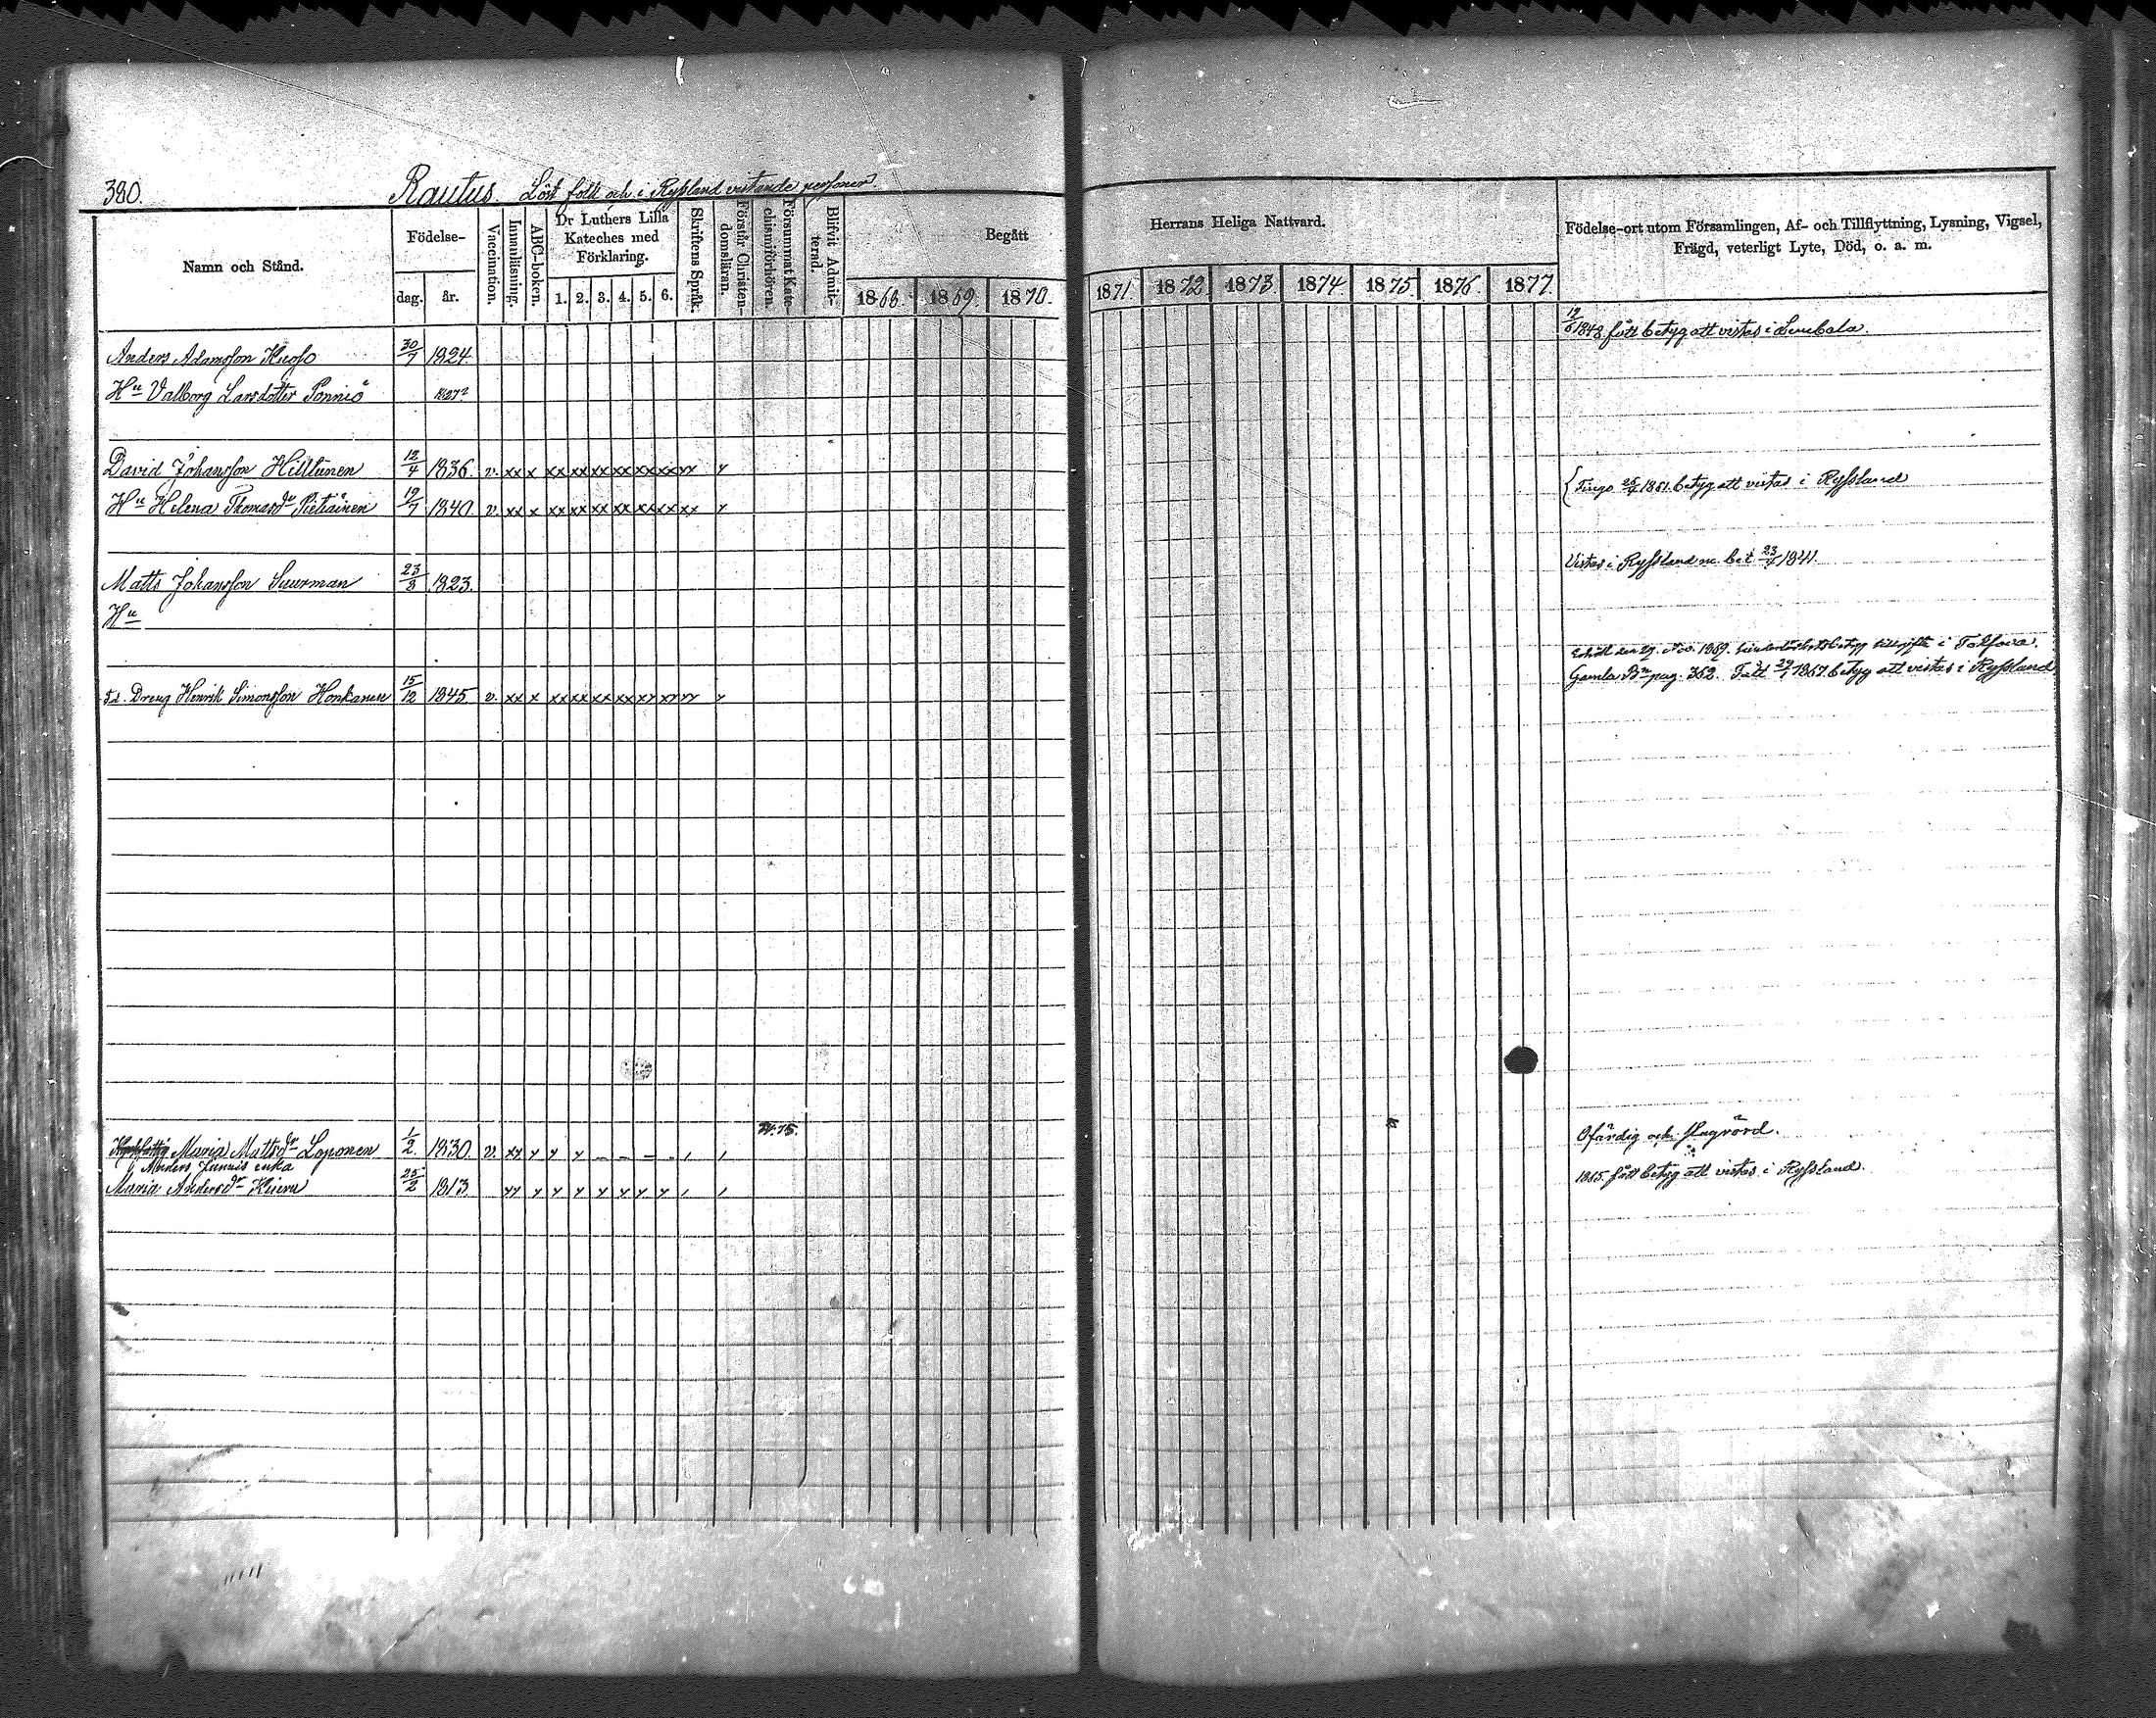 380. Rautus. Löst folk och i Ryssland vistande personer.
Namn och Stånd.
Födelse-
dag. år.
Vaccination.
Innanläsning.
ABC-boken.
Dr Luthers Lilla Kateches med Förklaring.
1. 2. 3. 4. 5. 6.
Skriftens Språk.
Förstår Christendomsläran.
Försummat Katechismiförhören.
Blifvit Admitterad.
Begått Herrans Heliga Nattvard.
1868. 1869. 1870. 1871. 1872 1873 1874 1875. 1876 1877
Födelse-ort utom Församlingen, Af- och Tillflyttning, Lysning, Vigsel,
Frägd, veterligt Lyte, Död, o. a. m.
Anders Adamsson 30/7 1824. fått betyg att vistas i Lembala.
Hu Valborg Larsdotter 1827?
David Johansson Hiltunen 12/4 1836. v. xx x xx xx xx xx xx xx xx x
Hu Helena Thomasdr Pietiäinen 19/7 1840 v. xx x xx xx xx xx xx xx xx x betyg att vistas i Ryssland
Matts Johansson Suurman 23/3 1823. Vistas i Ryssland m. bet 1841.
Hu
den 29 Nov. 1869.
Gamla Bn pag. 362. Fått 1867 betyg att vistas i Ryssland
Dreng Henrik Simonsson Honkanen 15/12 1845. v. xx x xx xx xx xx xx xx xx x
Maria Mattsdr Loponen 1/2. 1830. v. 75. x Ofärdig och
Anders Junnis enka
Maria Andersdr 25/2 1813. 1865. fått betyg att vistas i Ryssland.